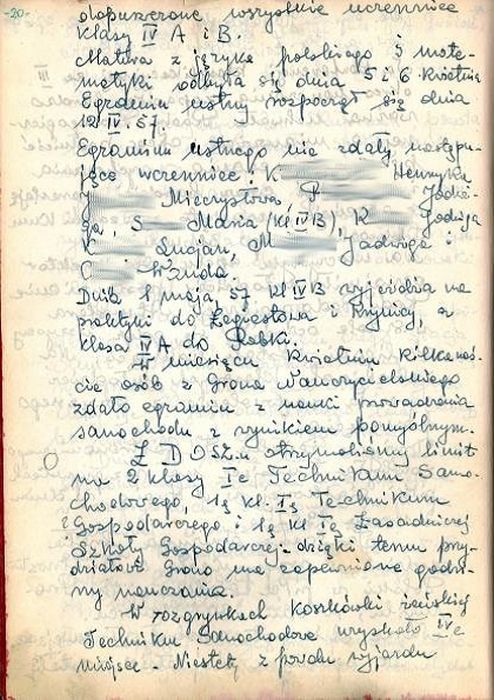 -20-
dopuszczone wszystkie uczennice
klasy IV A i B.
Matura z języka polskiego i mate-
matyki odbyła się dnia 5 i 6 kwietnia
Egzamin ustny rozpoczął się dnia
12 IV. 57.
Egzaminu ustnego nie zdały następu-
jące uczennice: K Henryka
Mieczysława, P Jadwi-
ga, S Maria (kl IV B), K Jadwiga
K Lucjan, M Jadwiga i
C Wanda.
Dnia 1 maja, 57 kl IV B wyjeżdża na
praktyki do Żegiestowa i Krynicy, a
klasa IV A do Rabki.
W miesiącu kwietniu kilkanaś-
cie osób z Grona Nauczycielskiego
zdało egzamin z nauki prowadzenia
samochodu z wynikiem pomyślnym.
Z DOSZ-u otrzymaliśmy limit
na 2 klasy Ie Technikum Samo-
chodowego, 1ą kl. Ią Technikum
Gospodarczego i 1ą kl Ią Zasadniczej
Szkoły Gospodarczej - dzięki temu przy-
działowi Grono ma zapewnione godzi-
ny nauczania.
W rozgrywkach koszkówki żeńskiej
Technikum Samochodowe uzyskało IVe
miejsce. Niestety z powodu wyjazdu